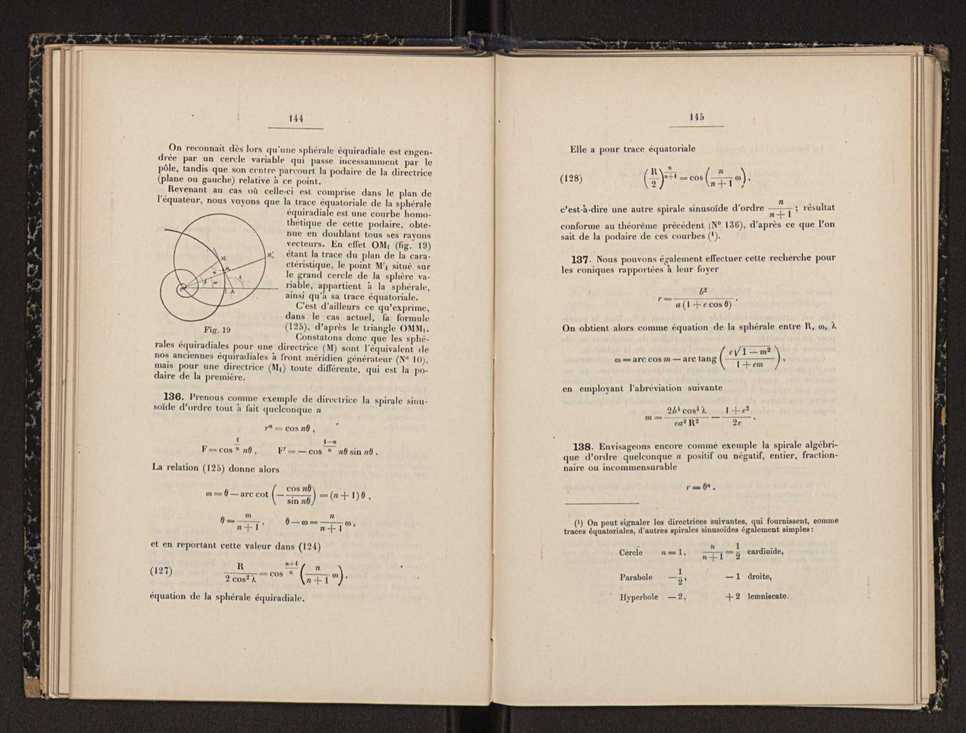 144
On reconnait dès lors qu'une sphérale équiradiale est engen-
drée par un cercle variable qui passe incessamment par le
pôle, tandis que son centre parcourt la podaire de la directrice
(plane ou gauche) relative à ce point.
Revenant au cas où celle-ci est comprise dans le plan de
l'équateur, nous voyons que la trace équatoriale de la sphérale
équiradiale est une courbe homo-
thétique de cette podaire, obte-
nue en doublant tous ses rayons
vecteurs. En effet OM₁ (fig. 19)
étant la trace du plan de la cara-
ctéristique, le point M'₁ situé sur
le grand cercle de la sphère va-
riable, appartient à la sphérale,
ainsi qu'à sa trace équatoriale.
C'est d'ailleurs ce qu'exprime,
dans le cas actuel, la formule
(125), d'après le triangle OMM₁.
Fig. 19
Constatons donc que les sphé-
rales équiradiales pour une directrice (M) sont l'équivalent de
nos anciennes équiradiales à front méridien générateur (N° 10),
mais pour une directrice (M₁) toute différente, qui est la po-
daire de la première.
136. Prenons comme exemple de directrice la spirale sinu-
soïde d'ordre tout à fait quelconque n
rⁿ = cos nθ ,
F = cos^{1/n} nθ , F' = — cos^{(1—n)/n} nθ sin nθ .
La relation (125) donne alors
ω = θ — arc cot (— cos nθ / sin nθ) = (n + 1) θ ,
θ = ω / (n + 1) , θ — ω = n / (n + 1) ω ,
et en reportant cette valeur dans (124)
(127) R / (2 cos² λ) = cos^{(n+1)/n} (n / (n + 1) ω) ,
équation de la sphérale équiradiale.
145
Elle a pour trace équatoriale
(128) (R / 2)^{n/(n+1)} = cos (n / (n + 1) ω) ,
c'est-à-dire une autre spirale sinusoïde d'ordre n / (n + 1) ; résultat
conforme au théorème précédent (N° 136), d'après ce que l'on
sait de la podaire de ces courbes (¹).
137. Nous pouvons également effectuer cette recherche pour
les coniques rapportées à leur foyer
r = b² / (a (1 + e cos θ)) .
On obtient alors comme équation de la sphérale entre R, ω, λ
ω = arc cos m — arc tang (e√(1 — m²) / (1 + em)) ,
en employant l'abréviation suivante
m = 2b⁴ cos² λ / (ea² R²) — (1 + e²) / 2e .
138. Envisageons encore comme exemple la spirale algébri-
que d'ordre quelconque n positif ou négatif, entier, fraction-
naire ou incommensurable
r = θⁿ .
(¹) On peut signaler les directrices suivantes, qui fournissent, comme
traces équatoriales, d'autres spirales sinusoïdes également simples :
Cercle n = 1, n / (n + 1) = 1 / 2 cardioïde,
Parabole — 1 / 2, — 1 droite,
Hyperbole — 2, + 2 lemniscate.